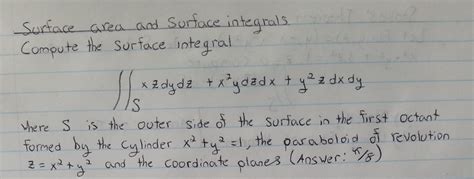 Surface area and Surface integrals
Compute the surface integral
∬_S xzdydz + x²ydzdx + y²zdxdy
where S is the outer side of the surface in the first octant
formed by the cylinder x²+y²=1, the paraboloid of revolution
z=x²+y² and the coordinate planes (Answer: π/8)